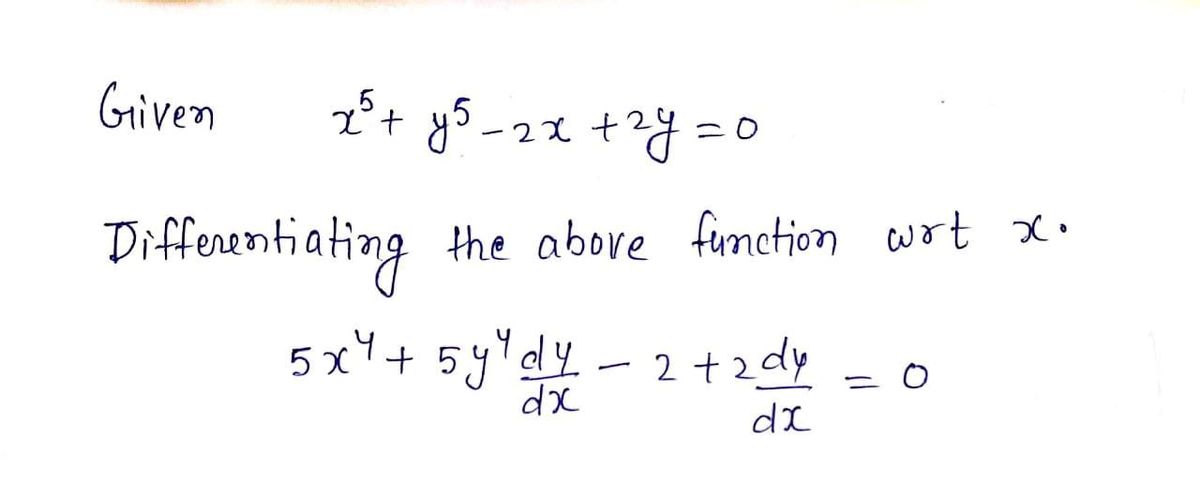 Given x⁵ + y⁵ - 2x + 2y = 0
Differentiating the above function wrt x.
5x⁴ + 5y⁴ dy/dx - 2 + 2 dy/dx = 0